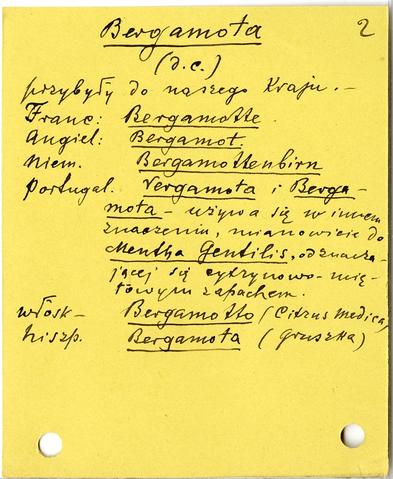 2
Bergamota
(d.c.)
przybyły do naszego Kraju. –
Franc: Bergamotte
Angiel: Bergamot.
Niem. Bergamottenbirn
Portugal. Vergamota i Berga-
mota – używa się w innem
znaczeniu, mianowicie do
Mentha Gentilis, odznacza-
jącej się cytrynowo-mię-
towym zapachem.
włosk – Bergamotto (Citrus Medica)
hiszp. Bergamota (Gruszka)